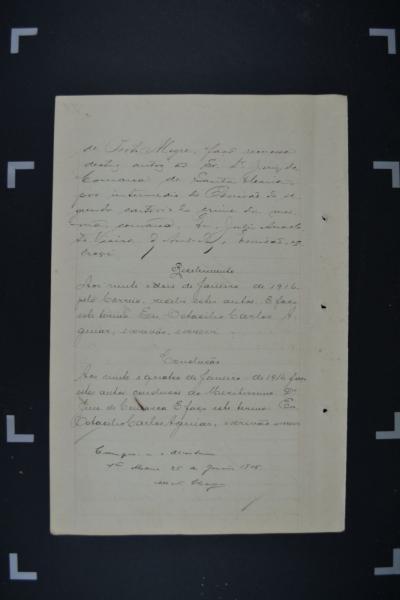 de Porto Alegre, faço remessa
destes autos ao Ex. Dr. Juiz da
Comarca de Santa Maria,
por intermedio do Escrivão do se
gundo cartorio do crime da mes
ma comarca. Eu,
escrivão, es
crevi
Recebimento
Aos vinte e dois de Janeiro de 1916.
pelo Correio, recebi estes autos. E faço
este termo. Eu Octacilio Carlos A
guiar, escrivão, escrevi.
Conclusão
Aos vinte e quatro de Janeiro de 1916 faço
estes autos conclusos ao Meretissimo Dr.
Juiz de Comarca. E faço este termo. Eu
Octacilio Carlos Aguiar, escrivão escrevi
Cumpra-se o
Sta Maria 25 de Janeiro 1916